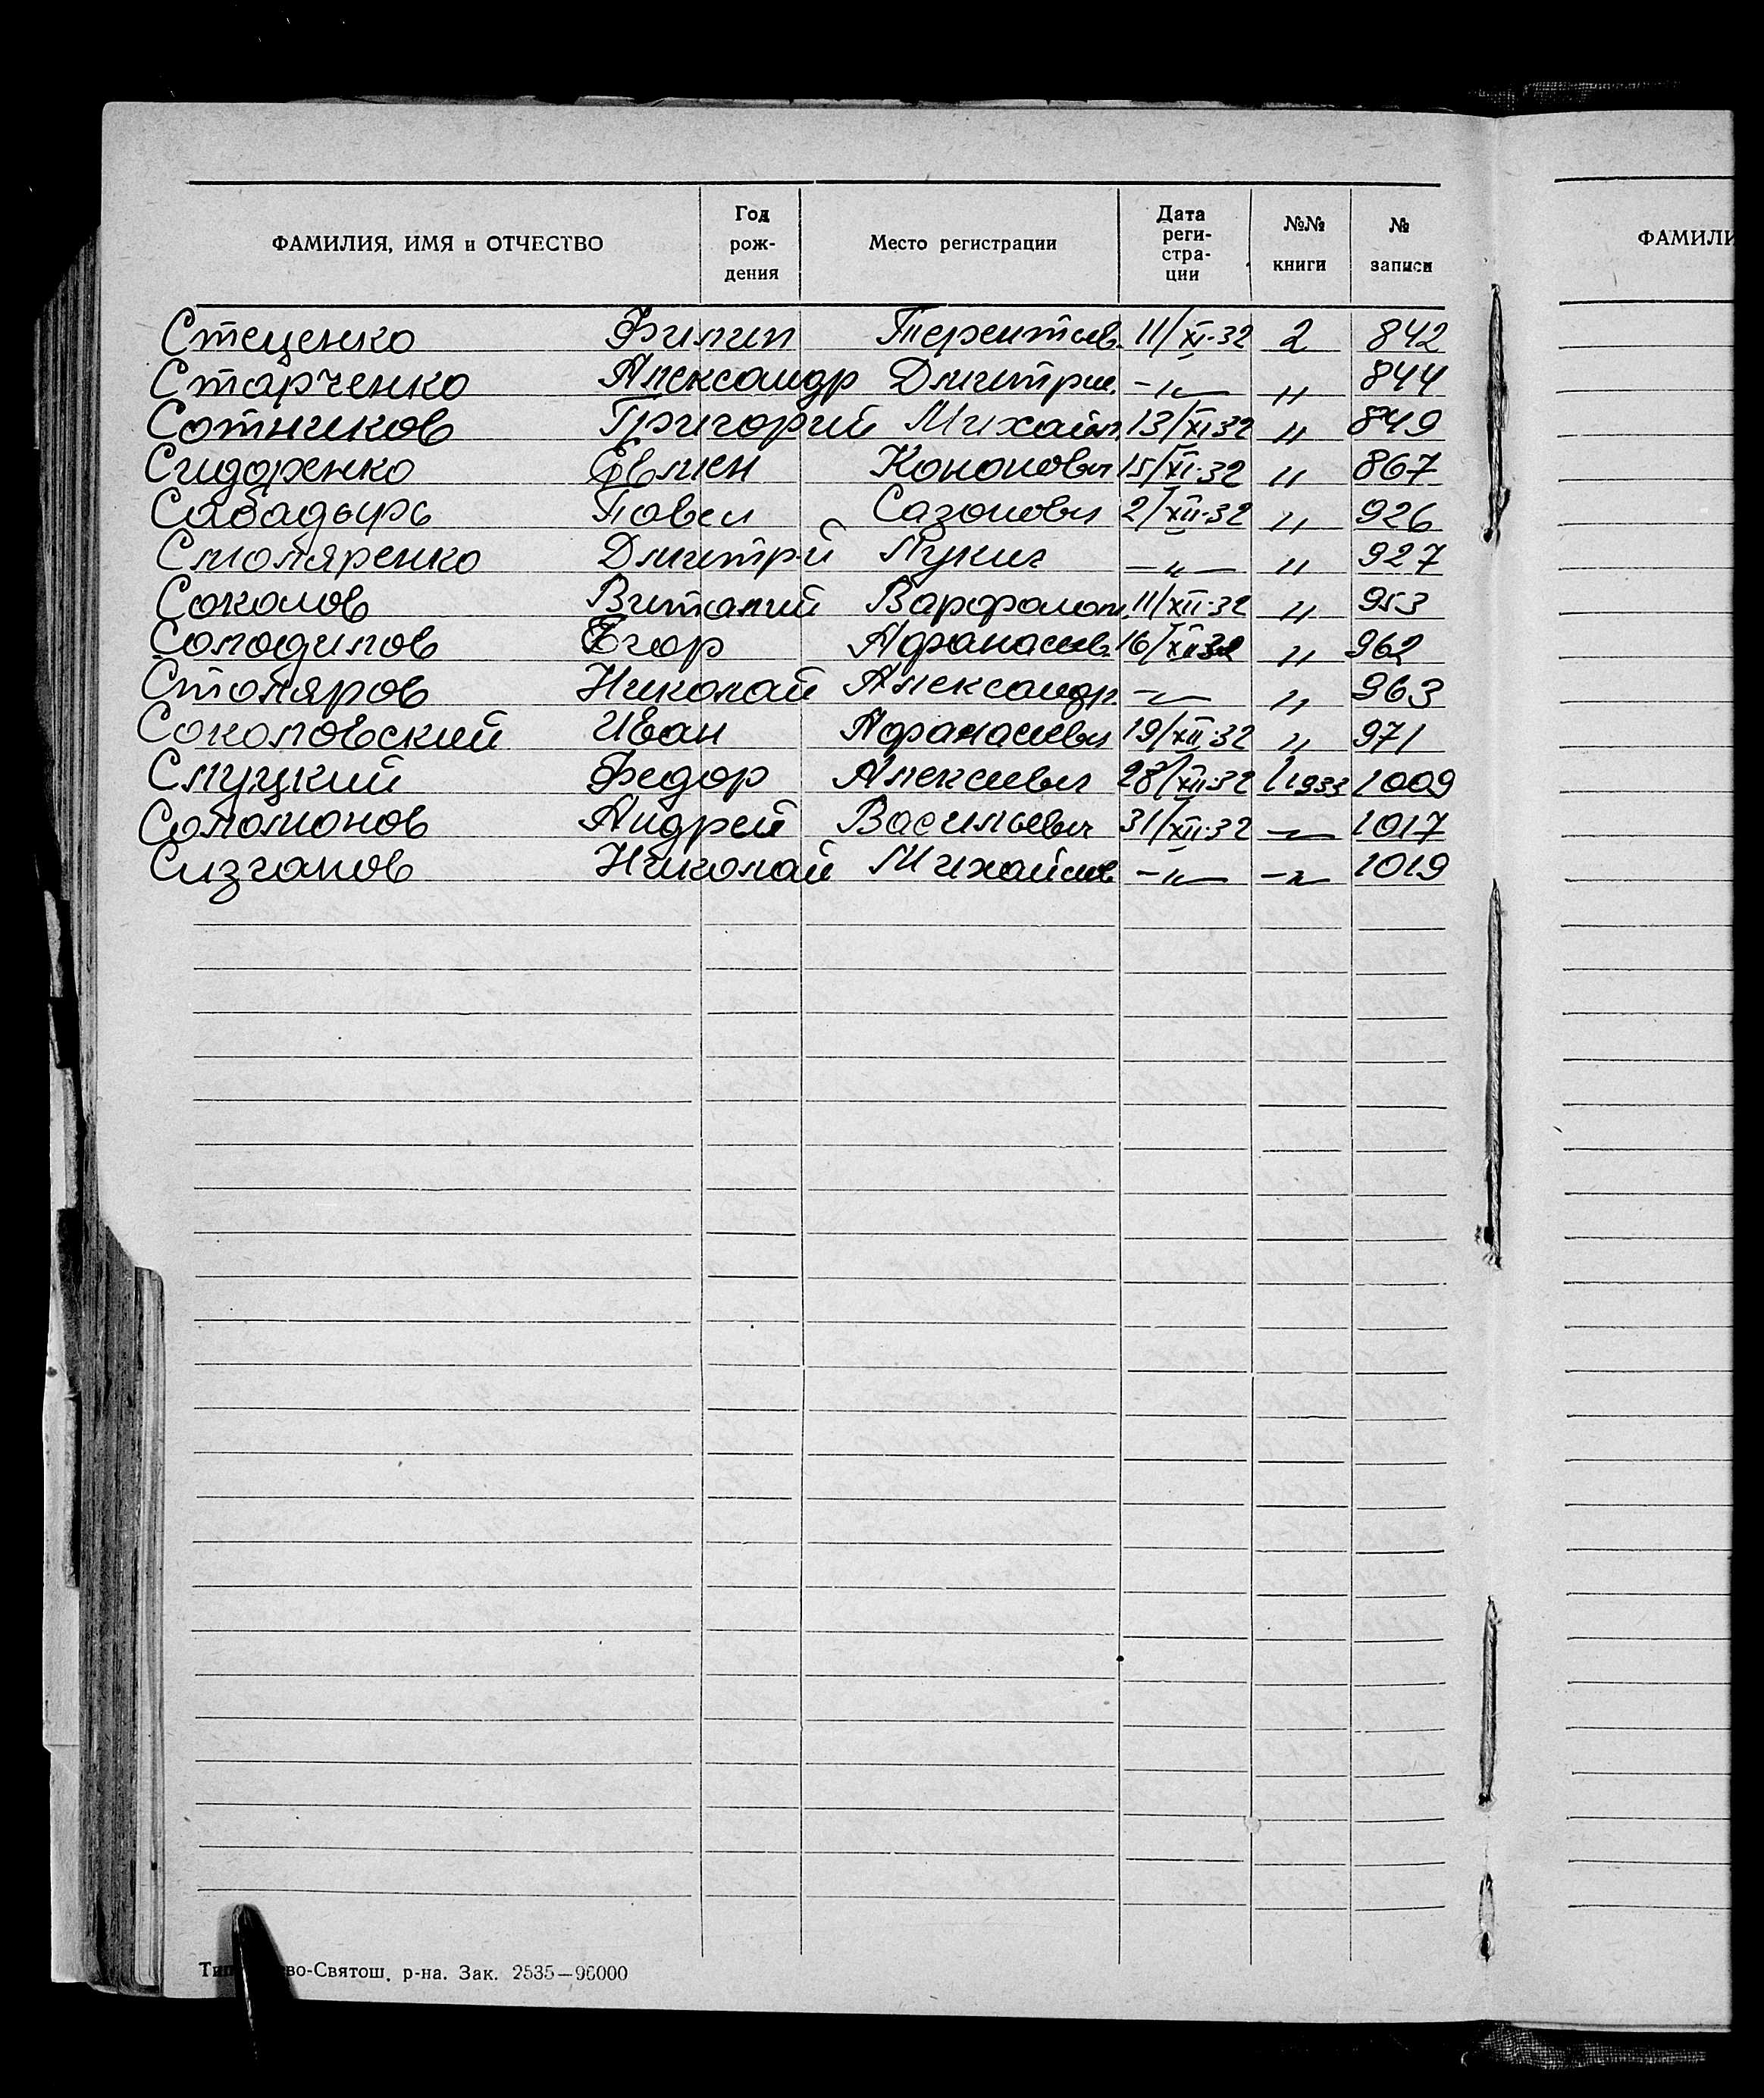 ФАМИЛИЯ, ИМЯ и ОТЧЕСТВО Год рождения Место регистрации Дата регистрации №№ книги № записи
ФАМИЛИ
Стеценко Филип Терентьев. 11/XI-32 2 842
Старченко Александр Дмитрие. -"- " 844
Сотников Григорий Михайл. 13/XI32 " 849
Сидоренко Евмен Кононович 15/XI-32 " 867
Сабадырь Павел Сазонович 2/XII-32 " 926
Смоляренко Дмитрий Лукич -"- " 927
Соколов Виталий Варфолом. 11/XII-32 " 953
Солодилов Егор Афанасьев. 16/XII32 " 962
Столяров Николай Александр. -"- " 963
Соколовский Иван Афанасьевич 19/XII-32 " 971
Слуцкий Федор Алексеевич 28/XII-32 1 1933 1009
Соломонов Андрей Васильевич 31/XII-32 -"- 1017
Николай Михайлов -"- -"- 1019
во-Святош. р-на. Зак. 2535—96000